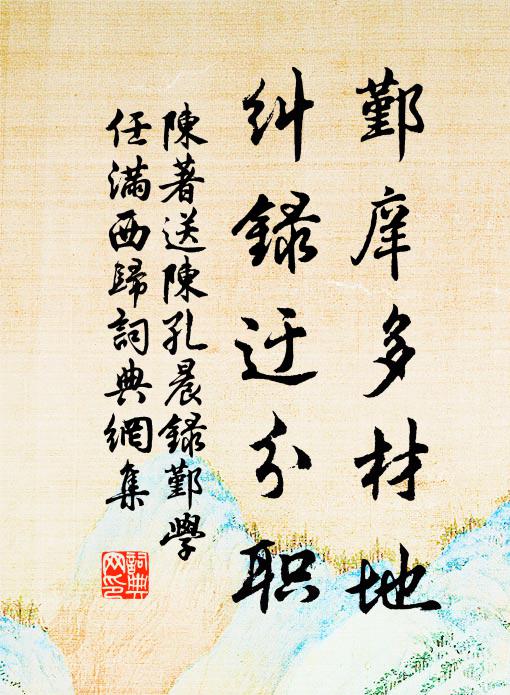 鄞庠多材地
糾録迂分职
陳著送陳孔晨録鄞學
任滿西歸詞典網集
詞典网印